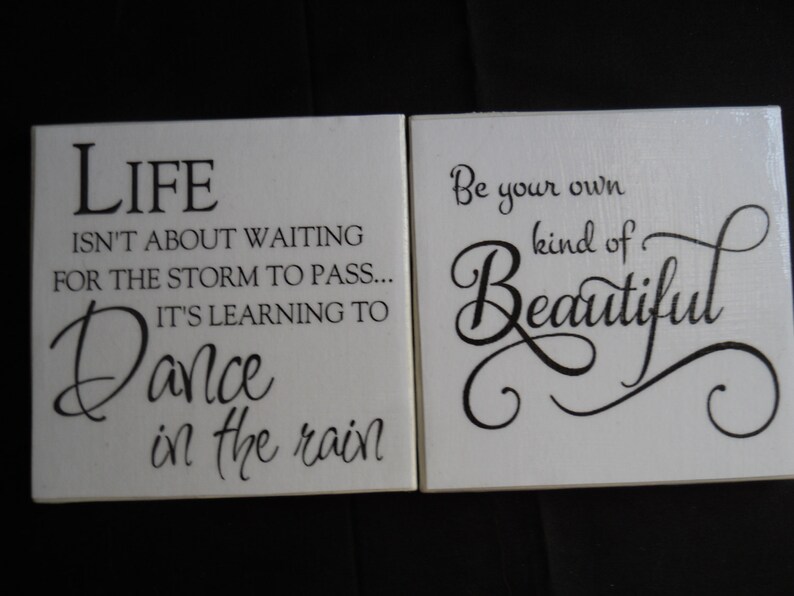 LIFE
ISN'T ABOUT WAITING
FOR THE STORM TO PASS...
IT'S LEARNING TO
Dance
in the rain
Be your own
kind of
Beautiful